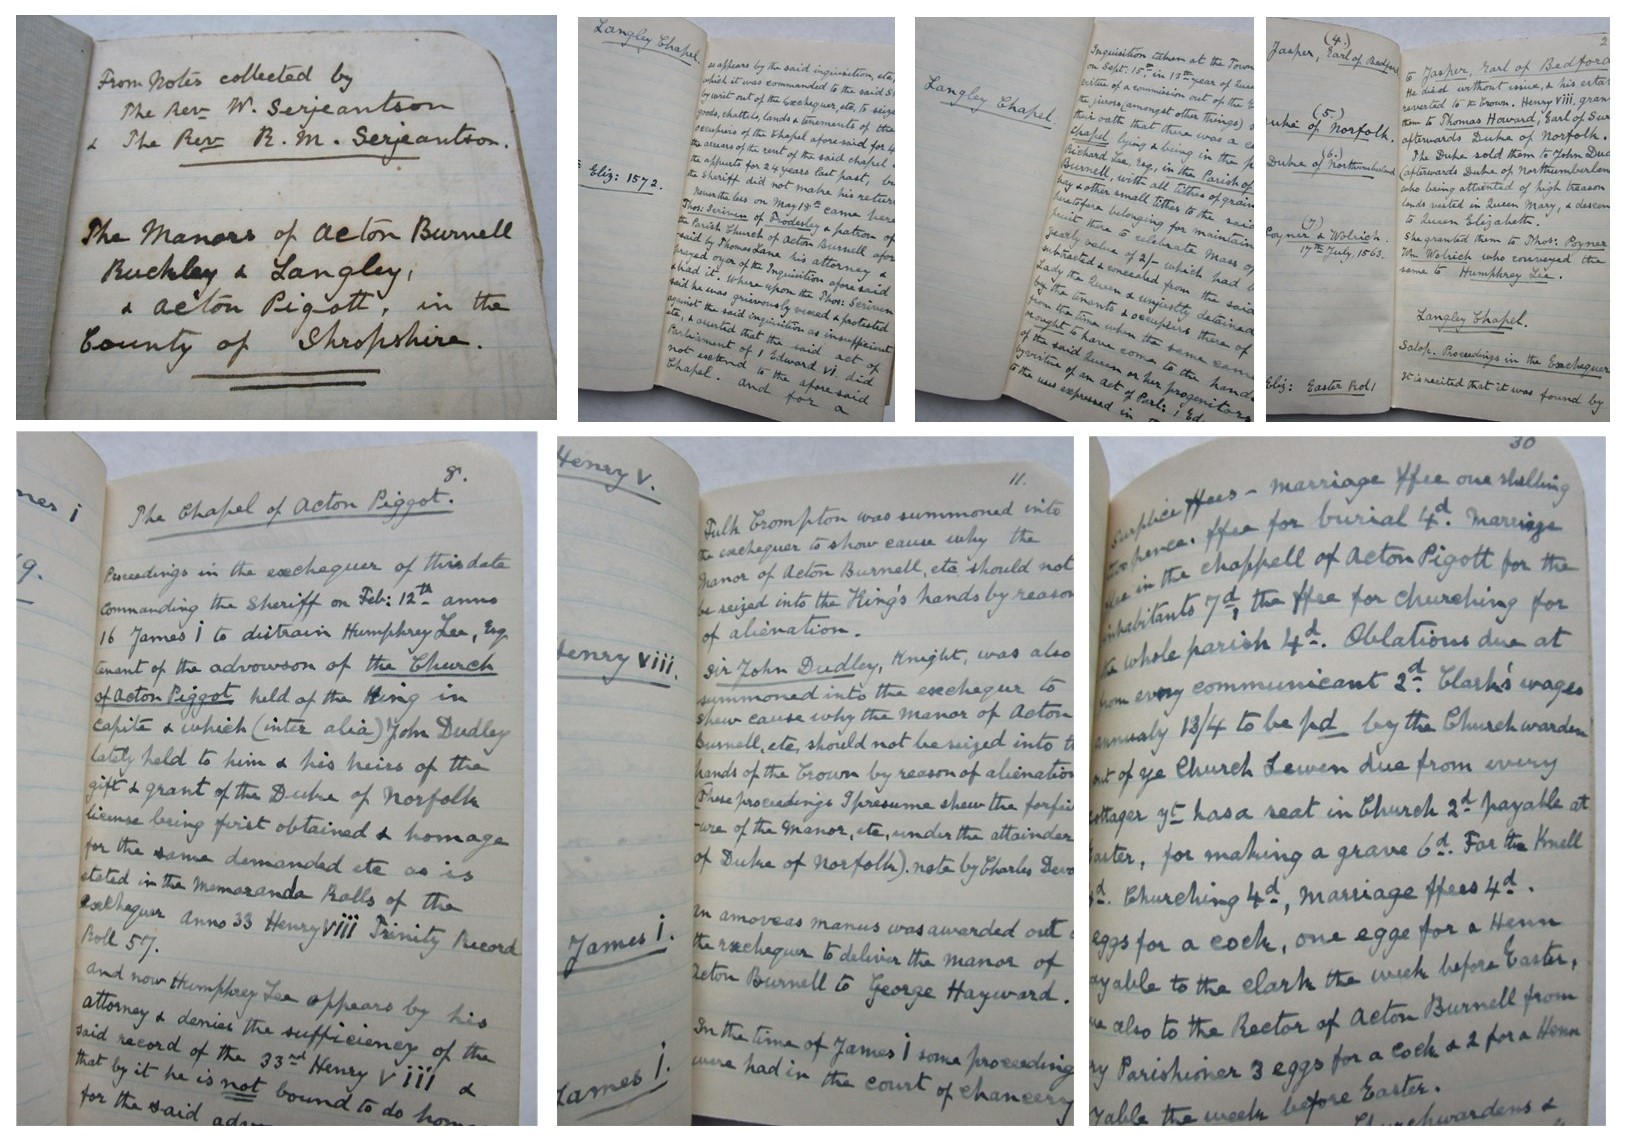 From Notes collected by
The Rev. W. Serjeantson
& The Rev. R. M. Serjeantson.
The Manors of Acton Burnell
Ruckley & Langley,
& Acton Pigott, in the
County of Shropshire.
Langley Chapel.
Eliz: 1572.
as appears by the said inquisition, etc,
which it was commanded to the said
by writ out of the Exchequer, etc, to seize
goods, chattels, lands & tenements of the
occupiers of the Chapel aforesaid for
the arrears of the rent of the said chapel
the appurts for 24 years last past, bu
the Sheriff did not make his return
Nevertheless on May 18th came here
Thos: Scriven of Frodesley & patron of
the Parish Church of Acton Burnell afore
said by Thomas Lane his attorney &
prayed oyer of the Inquisition aforesaid
& had it. Whereupon the Thos: Scriven
said he was grievously vexed & protested
against the said inquisition as insufficient
etc, & asserted that the said act of
Parliament of 1 Edward VI did
not extend to the aforesaid
Chapel. And for a
Langley Chapel.
Inquisition taken at the Town
on Sept: 15th in 13th year of Quee
virtue of a commission out of the E
the jurors (amongst other things)
their oath that there was a c
Chapel lying & being in the p
Richard Lee, Esq, in the Parish of
Burnell, with all tithes of grain
hay & other small tithes to the said
heretofore belonging for maintain
priest there to celebrate Mass of
yearly value of 2/- which had
subtracted & concealed from the said
Lady the Queen & unjustly detained
by the tenants & occupiers there of
from the time when the same came
or ought to have come to the hands
of the said Queen or her progenitors
by virtue of an act of Parl: 1 Ed
to the uses expressed in
(4.)
Jasper, Earl of Bedford
(5.)
Duke of Norfolk.
(6.)
Duke of Northumberland
(7)
Poyner & Wolrich.
17th July, 1563.
Eliz: Easter Rol 1
2
to Jasper, Earl of Bedford
He died without issue, & his estat
reverted to ye Crown. Henry VIII. gran
them to Thomas Howard, Earl of Sur
afterwards Duke of Norfolk.
The Duke sold them to John Dud
(afterwards Duke of Northumberlan
who being attainted of high treason
lands vested in Queen Mary, & descen
to Queen Elizabeth.
She granted them to Thos: Poyner
Wm Wolrich who conveyed the
same to Humphrey Lee.
Langley Chapel.
Salop. Proceedings in the Exchequer
It is recited that it was found by
mes i
9.
8.
The Chapel of Acton Piggot.
Proceedings in the exchequer of this date
commanding the Sheriff on Feb: 12th anno
16 James i to distrain Humphrey Lee, Esq
tenant of the advowson of the Church
of Acton Piggot held of the King in
capite & which (inter alia) John Dudley
lately held to him & his heirs of the
gift & grant of the Duke of Norfolk
license being first obtained & homage
for the same demanded etc as is
stated in the Memoranda Rolls of the
exchequer anno 33 Henry viii Trinity Record
Roll 57.
and now Humphrey Lee appears by his
attorney & denies the sufficiency of the
said record of the 33rd Henry Viii &
that by it he is not bound to do hom
for the said adv
Henry V.
Henry viii.
James i.
James i.
11.
Fulk Crompton was summoned into
the exchequer to show cause why the
Manor of Acton Burnell, etc should not
be seized into the King's hands by reason
of alienation.
Sir John Dudley, Knight, was also
summoned into the exchequr to
shew cause why the Manor of Acton
Burnell, etc, should not be seized into t
hands of the Crown by reason of alienation
(These proceedings I presume shew the forfei
-ure of the Manor, etc, under the attainder
of Duke of Norfolk). note by Charles Dev
An amoveas manus was awarded out
the exchequer to deliver the manor of
Acton Burnell to George Hayward.
In the time of James i some proceeding
were had in the court of chancery
30
Surplice ffees - marriage ffee one shilling
two pence. ffee for burial 4d. Marriage
ffee in the chappell of Acton Pigott for the
inhabitants 7d, the ffee for churching for
the whole parish 4d. Oblations due at
from every communicant 2d. Clark's wages
annualy 13/4 to be pd by the Churchwarden
out of ye Church Lewen due from every
cottager yt has a seat in Church 2d payable at
Easter, for making a grave 6d. For the Knell
d. Churching 4d, Marriage ffees 4d.
eggs for a cock, one egge for a Henn
payable to the clark the week before Easter,
due also to the Rector of Acton Burnell from
ry Parishioner 3 eggs for a Cock & 2 for a Henn
yable the week before Easter.
Churchwardens &